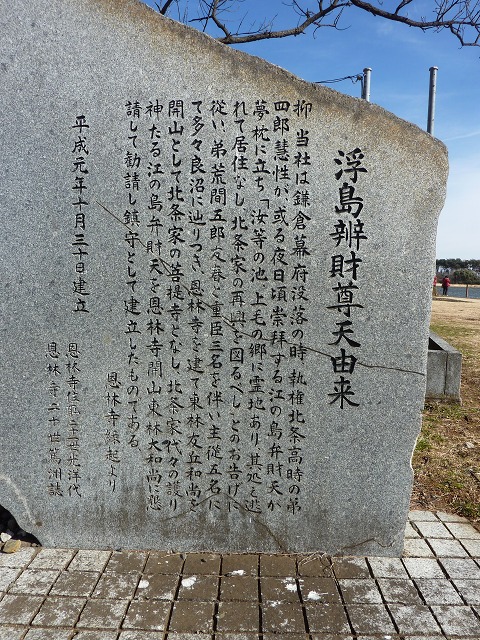 浮島辨財尊天由来
抑 当社は鎌倉幕府没落の時 執権北条高時の弟
四郎慧性が、或る夜日頃崇拝する江の島弁財天が
夢枕に立ち「汝等の池 上毛の郷に霊地あり、其処に逃
れて居住なし 北条家の再興を図るべし」とのお告げに
従い、弟荒間五郎 重臣三名を伴い主従五名に
て多々良沼に辿りつき、恩林寺を建て東林友丘和尚を
開山として北条家の菩提寺となし、北条家代々の護り
神たる江の島弁財天を恩林寺開山東林大和尚に懇
請して勧請し鎮守として建立したものである。
恩林寺縁起より
平成元年十月三十日建立
恩林寺
恩林寺二十世